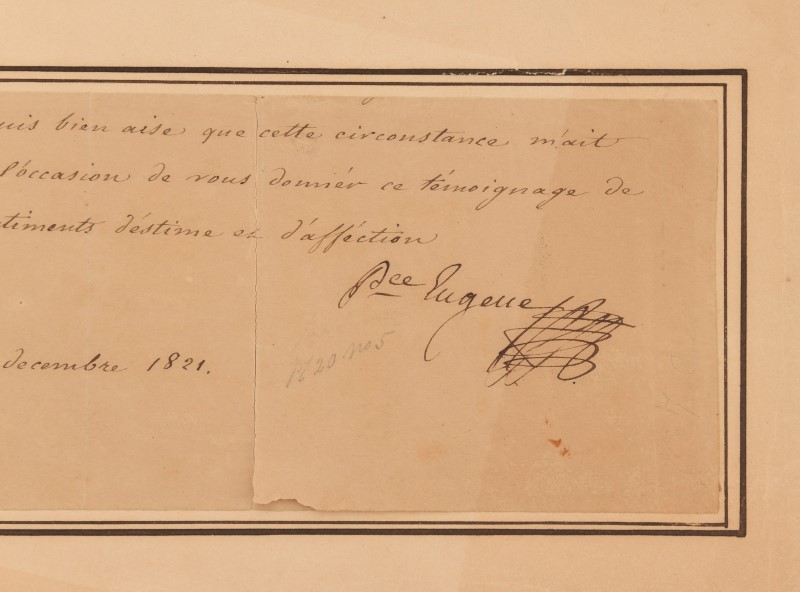 uis bien aise que cette circonstance m'ait
l'occasion de vous donnér ce témoignage de
timents d'éstime et d'afféction
Pce Eugene
decembre 1821.